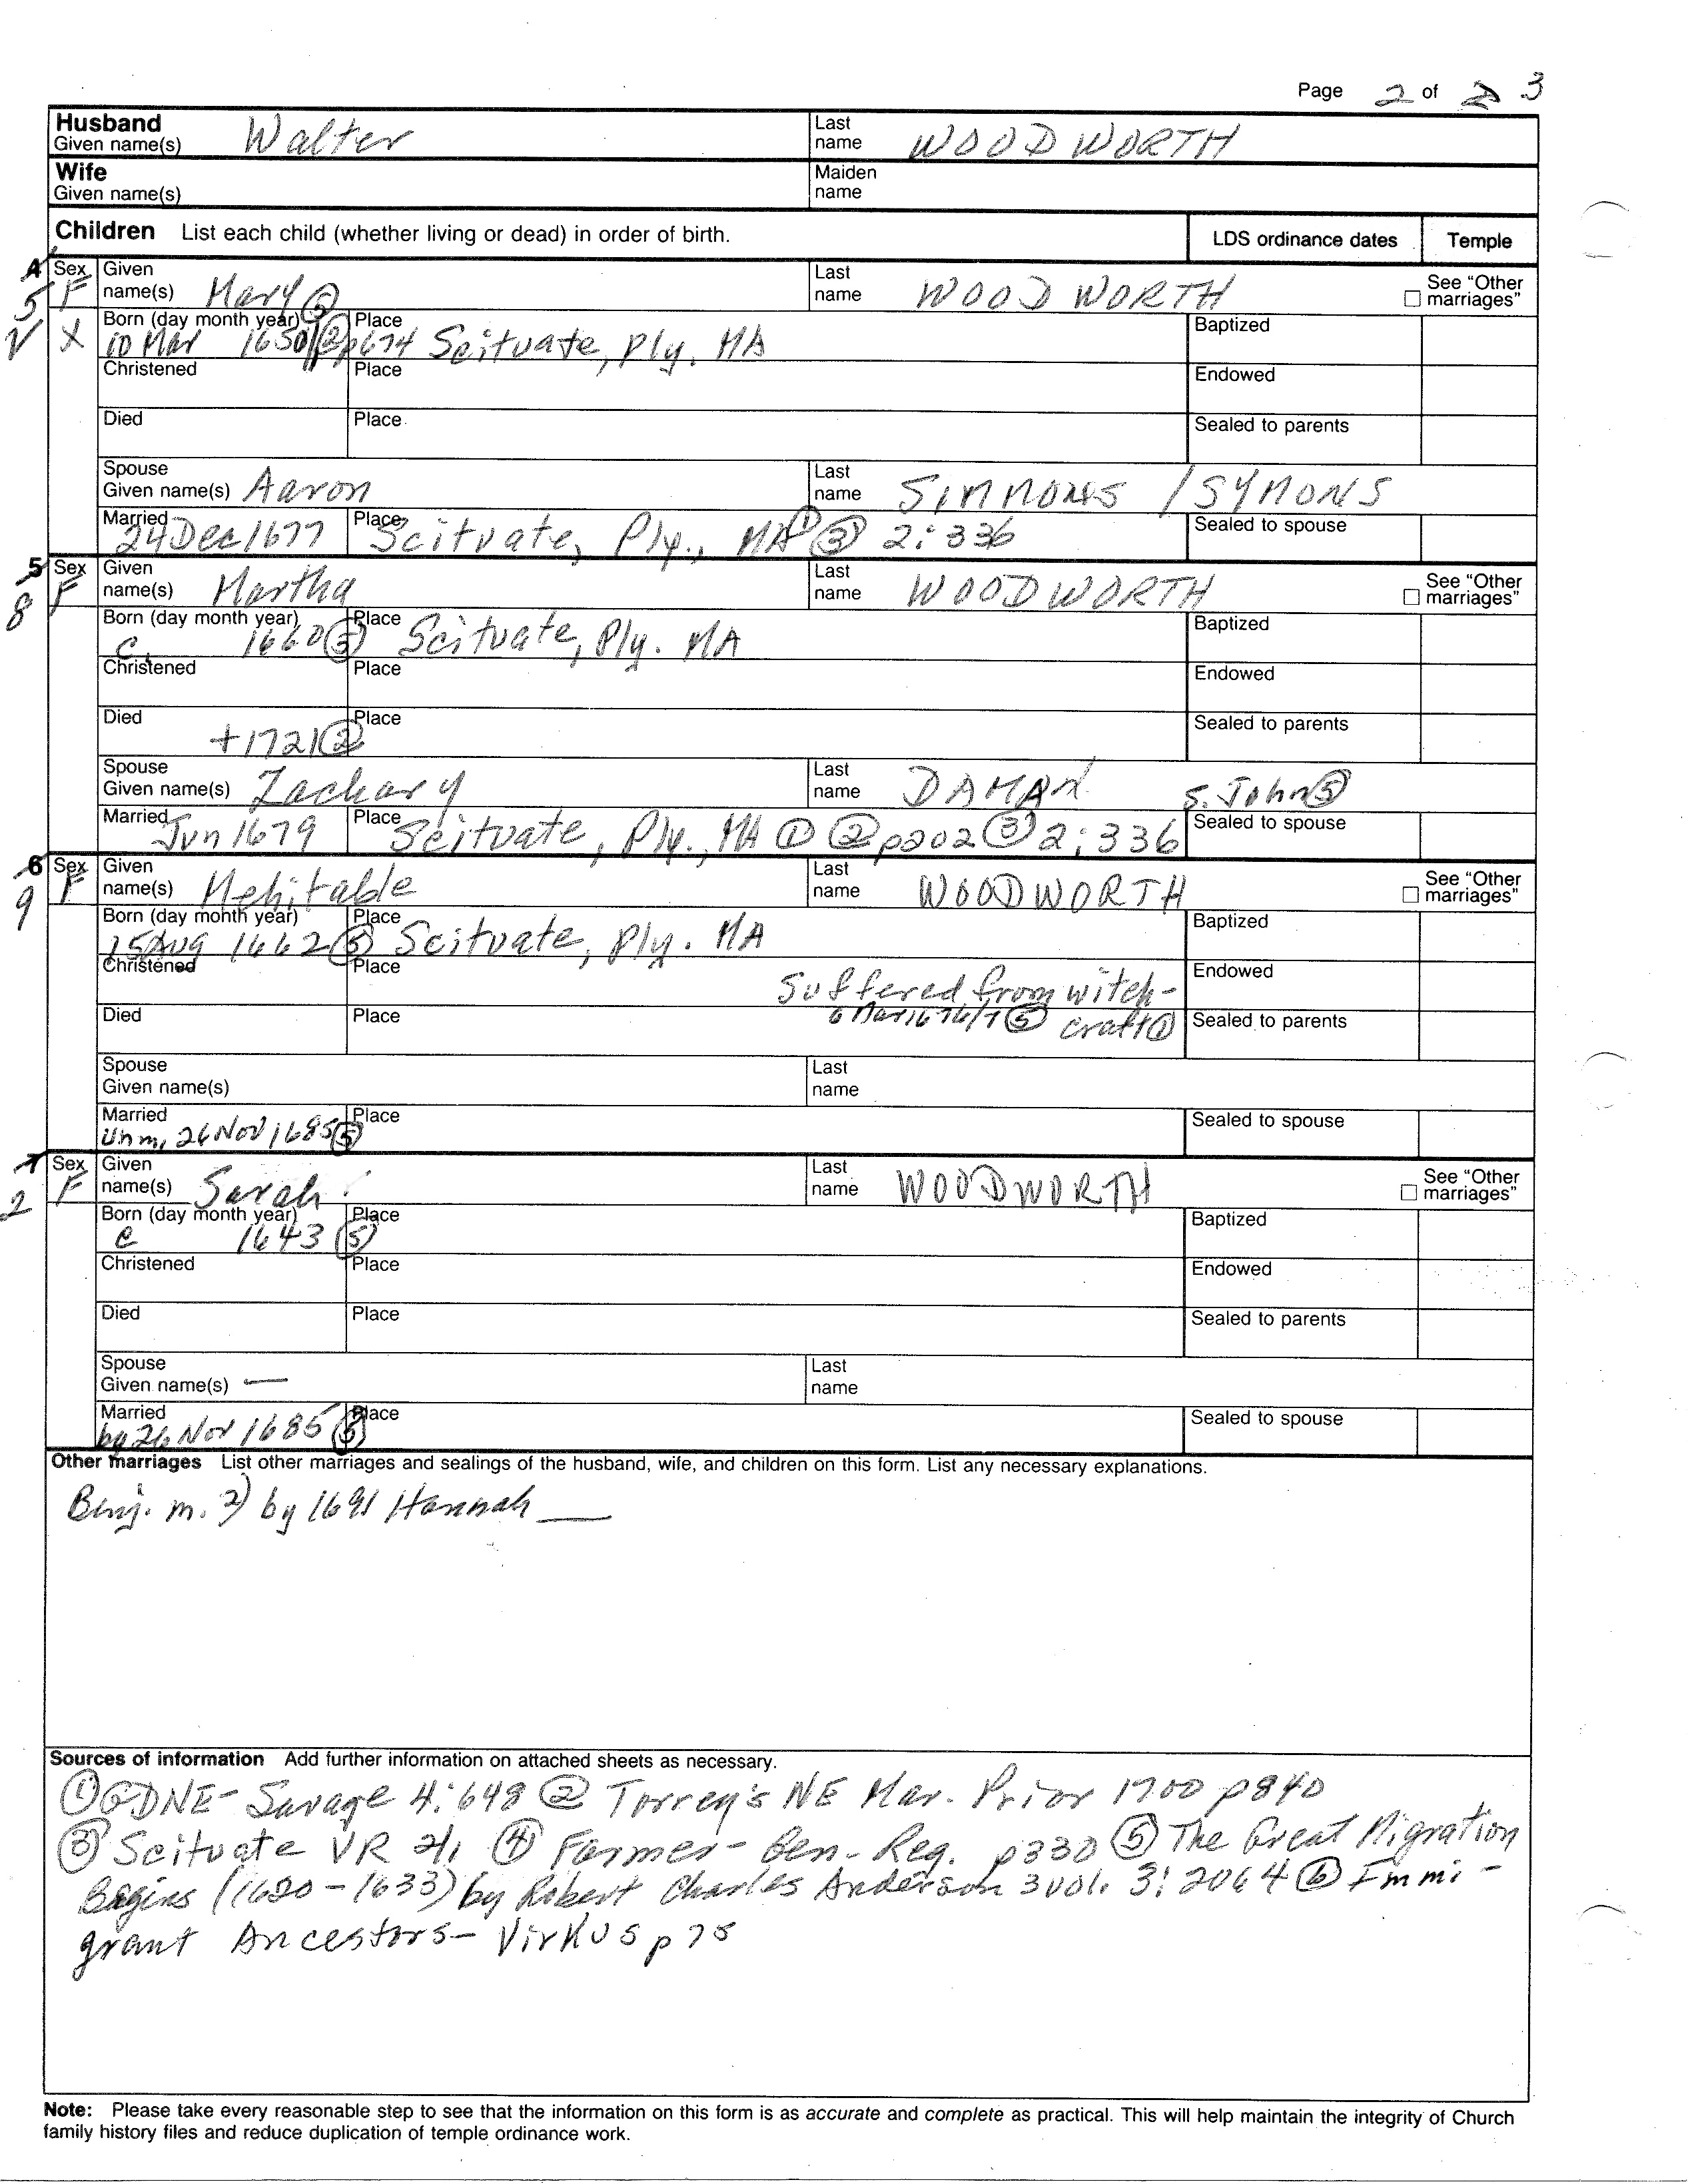 Page 2 of 3
Husband Given name(s) Walter Last name WOODWORTH
Wife Given name(s) Maiden name
Children List each child (whether living or dead) in order of birth. LDS ordinance dates Temple
4 5 Sex F Given name(s) Mary ⑤ Last name WOODWORTH See "Other marriages"
X Born (day month year) 10 Mar 1650/1 ② p674 Place Scituate, Ply. MA Baptized
Christened Place Endowed
Died Place Sealed to parents
Spouse Given name(s) Aaron Last name SIMMONS / SYMONS
Married 24 Dec 1677 Place Scituate, Ply., MA ① ③ 2:336 Sealed to spouse
5 8 Sex F Given name(s) Martha Last name WOODWORTH See "Other marriages"
Born (day month year) c. 1660 ⑤ Place Scituate, Ply. MA Baptized
Christened Place Endowed
Died +1721 ② Place Sealed to parents
Spouse Given name(s) Zachary Last name DAMAN s. John ⑤
Married Jun 1679 Place Scituate, Ply., MA ① ② p202 ③ 2:336 Sealed to spouse
6 9 Sex F Given name(s) Mehitable Last name WOODWORTH See "Other marriages"
Born (day month year) 15 Aug 1662 ⑤ Place Scituate, Ply. MA Baptized
Christened Place Suffered from witch- Endowed
Died Place 6 Mar 1676/7 ⑤ craft ① Sealed to parents
Spouse Given name(s) Last name
Married Unm. 26 Nov 1685 ⑤ Place Sealed to spouse
7 2 Sex F Given name(s) Sarah Last name WOODWORTH See "Other marriages"
Born (day month year) c 1643 ⑤ Place Baptized
Christened Place Endowed
Died Place Sealed to parents
Spouse Given name(s) — Last name
Married by 26 Nov 1685 ⑤ Place Sealed to spouse
Other marriages List other marriages and sealings of the husband, wife, and children on this form. List any necessary explanations.
Benj. m. 2) by 1691 Hannah ___
Sources of information Add further information on attached sheets as necessary.
① GDNE- Savage 4:648 ② Torrey's NE Mar. Prior 1700 p840
③ Scituate VR ④ Farmer- Gen- Reg. p330 ⑤ The Great Migration
Begins (1620-1633) by Robert Charles Anderson 3 vol. 3:2064 ⑥ Immi-
grant Ancestors- Virkus p75
Note: Please take every reasonable step to see that the information on this form is as accurate and complete as practical. This will help maintain the integrity of Church
family history files and reduce duplication of temple ordinance work.